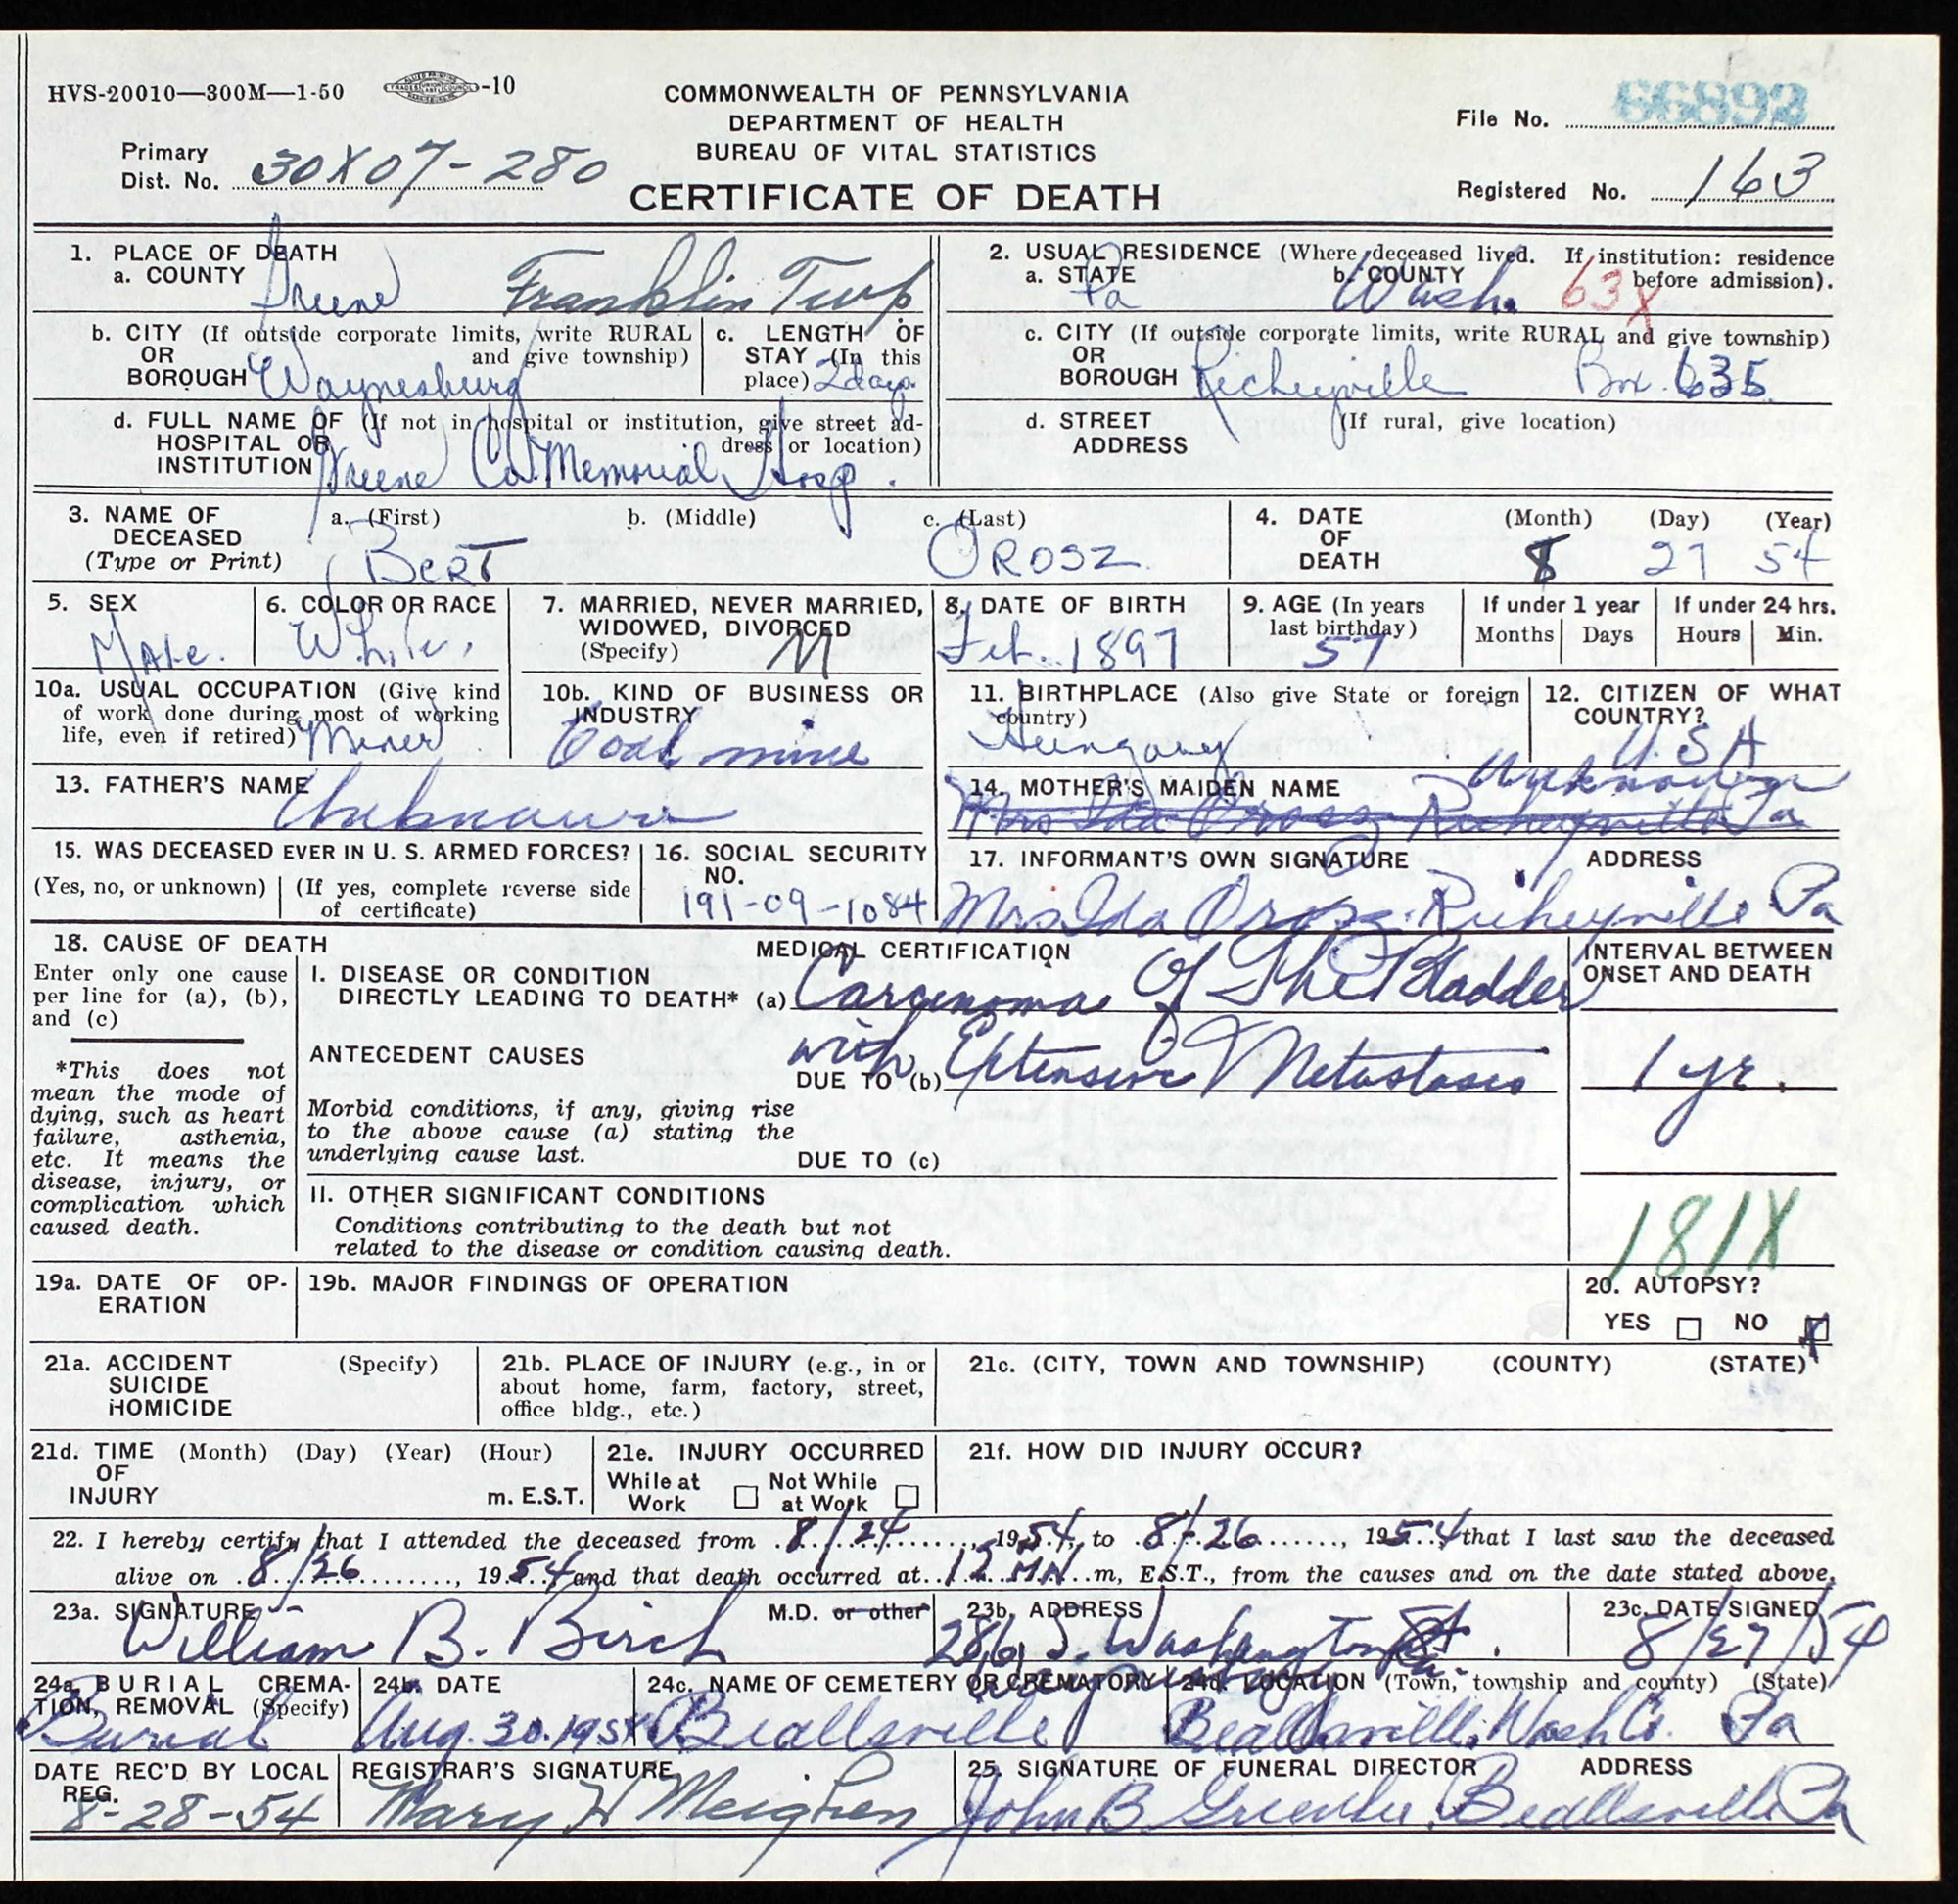 HVS-20010—300M—1-50 -10
COMMONWEALTH OF PENNSYLVANIA
DEPARTMENT OF HEALTH
BUREAU OF VITAL STATISTICS
CERTIFICATE OF DEATH
File No. 66892
Primary
Dist. No. 30X07-280
Registered No. 163
1. PLACE OF DEATH
a. COUNTY Greene Franklin Twp.
b. CITY (If outside corporate limits, write RURAL
OR and give township)
BOROUGH Waynesburg
c. LENGTH OF
STAY (In this
place) 2 days
d. FULL NAME OF (If not in hospital or institution, give street ad-
HOSPITAL OR dress or location)
INSTITUTION Greene Co. Memorial Hosp.
2. USUAL RESIDENCE (Where deceased lived. If institution: residence
a. STATE b. COUNTY before admission).
Pa Wash. 63X
c. CITY (If outside corporate limits, write RURAL and give township)
OR
BOROUGH Richeyville Box 635
d. STREET (If rural, give location)
ADDRESS
3. NAME OF a. (First) b. (Middle) c. (Last)
DECEASED
(Type or Print) BERT OROSZ
4. DATE (Month) (Day) (Year)
OF
DEATH 8 27 54
5. SEX
Male.
6. COLOR OR RACE
White,
7. MARRIED, NEVER MARRIED,
WIDOWED, DIVORCED
(Specify) M
8. DATE OF BIRTH
Feb. 1897
9. AGE (In years
last birthday)
57
If under 1 year
Months Days
If under 24 hrs.
Hours Min.
10a. USUAL OCCUPATION (Give kind
of work done during most of working
life, even if retired) Miner
10b. KIND OF BUSINESS OR
INDUSTRY
Coal mine
11. BIRTHPLACE (Also give State or foreign
country)
Hungary
12. CITIZEN OF WHAT
COUNTRY?
U.S.A
13. FATHER'S NAME
Unknown
14. MOTHER'S MAIDEN NAME Unknown
Mrs Ida Orosz Richeyville Pa
15. WAS DECEASED EVER IN U. S. ARMED FORCES?
(Yes, no, or unknown) (If yes, complete reverse side
of certificate)
16. SOCIAL SECURITY
NO.
191-09-1084
17. INFORMANT'S OWN SIGNATURE ADDRESS
Mrs Ida Orosz. Richeyville Pa
18. CAUSE OF DEATH
Enter only one cause
per line for (a), (b),
and (c)
*This does not
mean the mode of
dying, such as heart
failure, asthenia,
etc. It means the
disease, injury, or
complication which
caused death.
MEDICAL CERTIFICATION
I. DISEASE OR CONDITION
DIRECTLY LEADING TO DEATH* (a) Carcinoma Of The Bladder
ANTECEDENT CAUSES with
DUE TO (b) Extensive Metastasis
Morbid conditions, if any, giving rise
to the above cause (a) stating the
underlying cause last.
DUE TO (c)
II. OTHER SIGNIFICANT CONDITIONS
Conditions contributing to the death but not
related to the disease or condition causing death.
INTERVAL BETWEEN
ONSET AND DEATH
1 yr.
181X
19a. DATE OF OP-
ERATION
19b. MAJOR FINDINGS OF OPERATION
20. AUTOPSY?
YES NO X
21a. ACCIDENT (Specify)
SUICIDE
HOMICIDE
21b. PLACE OF INJURY (e.g., in or
about home, farm, factory, street,
office bldg., etc.)
21c. (CITY, TOWN AND TOWNSHIP) (COUNTY) (STATE)
21d. TIME (Month) (Day) (Year) (Hour)
OF
INJURY m. E.S.T.
21e. INJURY OCCURRED
While at Not While
Work at Work
21f. HOW DID INJURY OCCUR?
22. I hereby certify that I attended the deceased from 8/24, 1954, to 8-26, 1954 that I last saw the deceased
alive on 8/26, 1954 and that death occurred at 12 MN m, E.S.T., from the causes and on the date stated above.
23a. SIGNATURE M.D. or other
William B. Birch
23b. ADDRESS
286 S. Washington St.
Waynesburg Pa.
23c. DATE SIGNED
8/27/54
24a. BURIAL CREMA-
TION, REMOVAL (Specify)
Burial
24b. DATE
Aug. 30. 1954
24c. NAME OF CEMETERY OR CREMATORY
Beallsville
24d. LOCATION (Town, township and county) (State)
Beallsville, Wash Co. Pa
DATE REC'D BY LOCAL
REG.
8-28-54
REGISTRAR'S SIGNATURE
Mary H Meighen
25. SIGNATURE OF FUNERAL DIRECTOR ADDRESS
John B Greenlee, Beallsville Pa